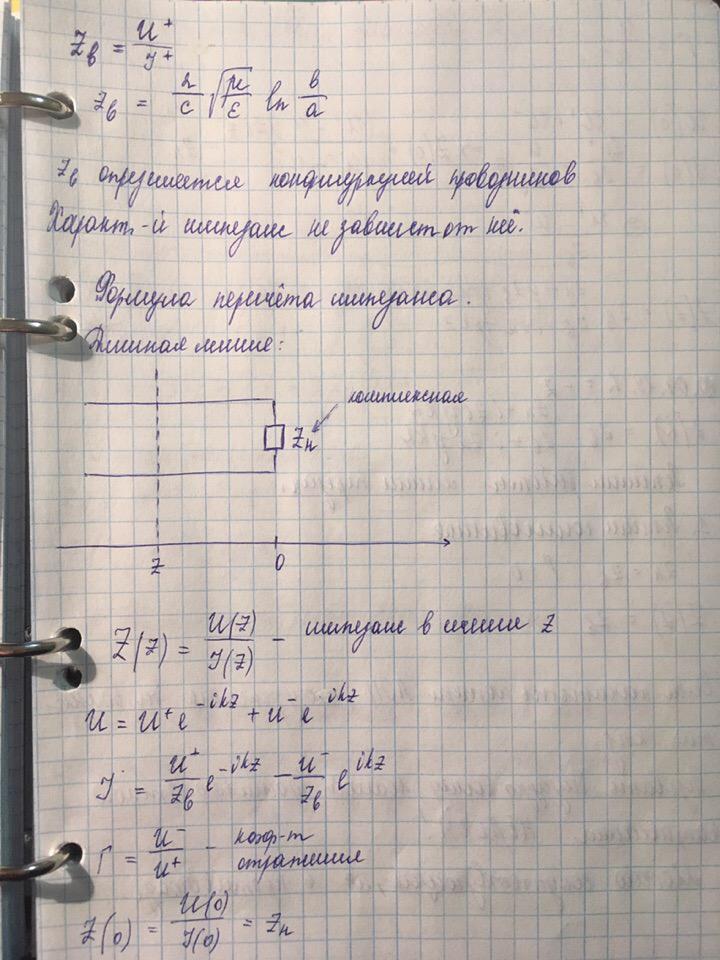 Z_в = U⁺/J⁺
Z_в = 2/c √(μ/ε) ln b/a
Z_в определяется конфигурацией проводников
Характ-й импеданс не зависит от неё.
Формула пересчёта импеданса.
Длинная линия:
комплексная
Z_н
z 0
Z(z) = U(z)/J(z) – импеданс в сечении z
U = U⁺e^{-ikz} + U⁻e^{ikz}
J = U⁺/Z_в e^{-ikz} – U⁻/Z_в e^{ikz}
Γ = U⁻/U⁺ – коэф-т отражения
Z(0) = U(0)/J(0) = Z_н